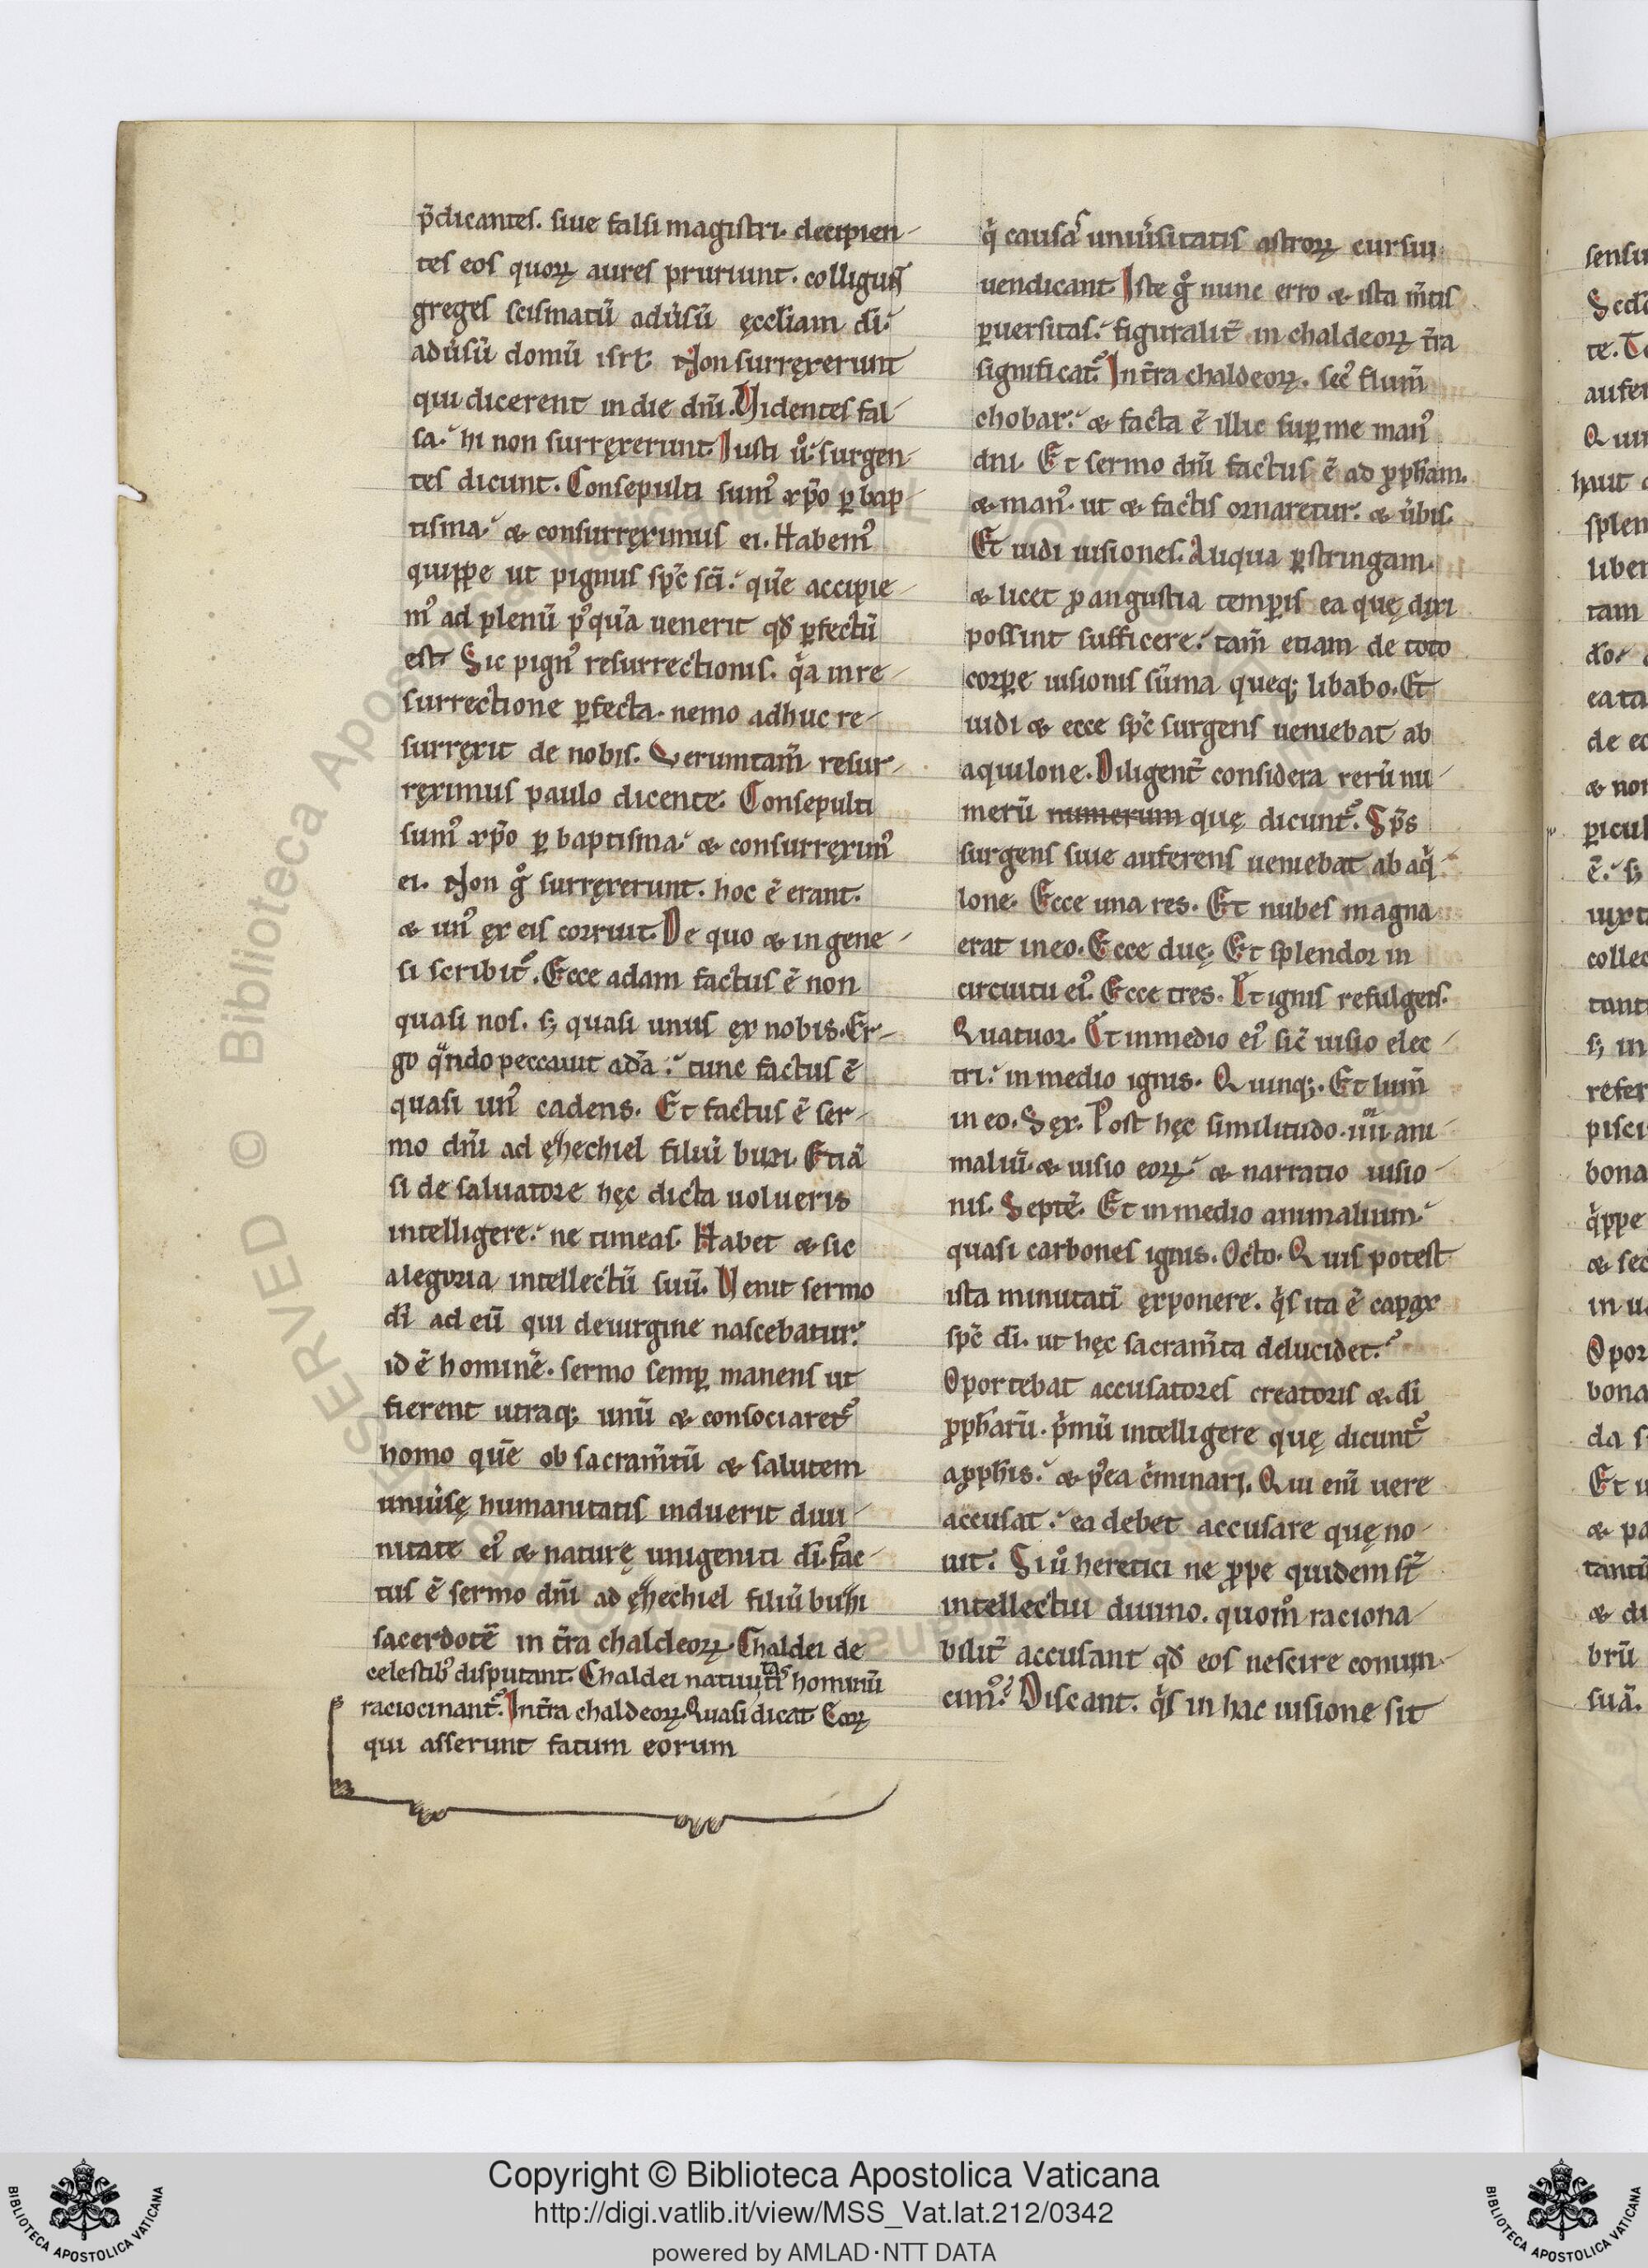 p̄dicantes. siue falsi magistri. decipien-
tes eos quoꝝ aures pruriunt. colligunt
greges scismatū adu̓sū ęccl̄iam dī.
adu̓sū domū isrł. Non surręxerunt
qui dicerent in die dn̄i. Videntes fal-
sa. hi non surręxerunt. Iusti u̓o surgen-
tes dicunt. Consepulti sumꝰ xp̄o ꝑ bap-
tisma. & consurręximus ei. Habemꝰ
quippe ut pignus sp̄c sc̄i. quē accipie-
mꝰ ad plenū pꝰquā uenerit qđ ꝑfectū
est. Sic pignꝰ resurrectionis. qͥa in re-
surrectione ꝑfecta. nemo adhuc re-
surręxit de nobis. Veruntam̄ resur-
ręximus paulo dicente. Consepulti
sumꝰ xp̄o ꝑ baptisma. & consurręximꝰ
ei. Non gͦ surręxerunt. hoc ē erant.
& unꝰ ęx eis corruit. De quo & in gene-
si scribit᷑. Ecce adam factus ē non
quasi nos. s; quasi unus ęx nobis. Er-
go qͣndo peccauit adā. tunc factus ē
quasi unꝰ cadens. Et factus ē ser-
mo dn̄i ad ęhechiel filiū buzi. Etiā
si de saluatore hęc dicta uolueris
intelligere. ne timeas. Habet & sic
alegoria intellectū suū. Venit sermo
dī ad eū qui de uirgine nascebatur.
id ē hominē. sermo semꝑ manens ut
fierent utraq; unū & consociaret᷑
homo quē ob sacram̄tū & salutem
uniu̓sę humanitatis induerit diui-
nitate eiꝰ & naturę unigeniti dī. fac-
tus ē sermo dn̄i ad ęhechiel filiū buhi
sacerdotē in t̄ra chaldeoꝝ. Chaldei de
celestibꝰ disputant. Chaldei natiuitates hominū
raciocinant᷑. In t̄ra chaldeoꝝ. Quasi dicat. Eoꝝ
qui asserunt fatum eorum
qͥ causas uniu̓sitatis astroꝝ cursui
uendicant. Iste gͦ nunc error & ista m̄tis
ꝑuersitas. figuralit᷑ in chaldeoꝝ t̄ra
significat᷑. In t̄ra chaldeoꝝ. secꝰ flum̄
chobar. & facta ē illic suꝑ me manꝰ
dni. Et sermo dn̄i factus ē ad ꝓph̄am.
& manꝰ. ut & factis ornaretur. & u̓bis.
Et uidi uisiones. Aliqua ꝑstringam.
& licet ꝓ angustia temꝑis ea quę dixi
possint sufficere. tam̄ etiam de toto
corꝑe uisionis sūma queq; libabo. Et
uidi & ecce sp̄c surgens ueniebat ab
aquilone. Diligent᷑ considera rerū nu-
merū numerum quę dicunt᷑. Sp̄s
surgens siue auferens ueniebat ab aqͥ-
lone. Ecce una res. Et nubes magna
erat in eo. Ecce duę. Et splendor in
circuitu eiꝰ. Ecce tres. Et ignis refulgens.
Quatuor. Et in medio eiꝰ sic̄ uisio elec-
tri. in medio ignis. Quinq;. Et lum̄
in eo. Sęx. Post hęc similitudo .iiii. ani-
maliū. & uisio eoꝝ. & narratio uisio-
nis. Septē. Et in medio animalium.
quasi carbones ignis. Octo. Quis potest
ista minutatī ęxponere. qͥs ita ē capax
sp̄c dī. ut hęc sacram̄ta delucidet.
Oportebat accusatores creatoris & dī
ꝓph̄arū. pͥmū intelligere quę dicunt᷑
a ꝓph̄is. & pꝰea cͥminari. Qui enī uere
accusat. ea debet accusare quę no-
uit. Si u̓o heretici ne ꝓpe quidem st̄
intellectui diuino. quom̊ raciona-
bilit᷑ accusant qđ eos nescire conuin-
cimꝰ? Discant. qͥs in hac uisione sit
Copyright © Biblioteca Apostolica Vaticana
http://digi.vatlib.it/view/MSS_Vat.lat.212/0342
powered by AMLAD·NTT DATA
BIBLIOTECA APOSTOLICA VATICANA
BIBLIOTECA APOSTOLICA VATICANA